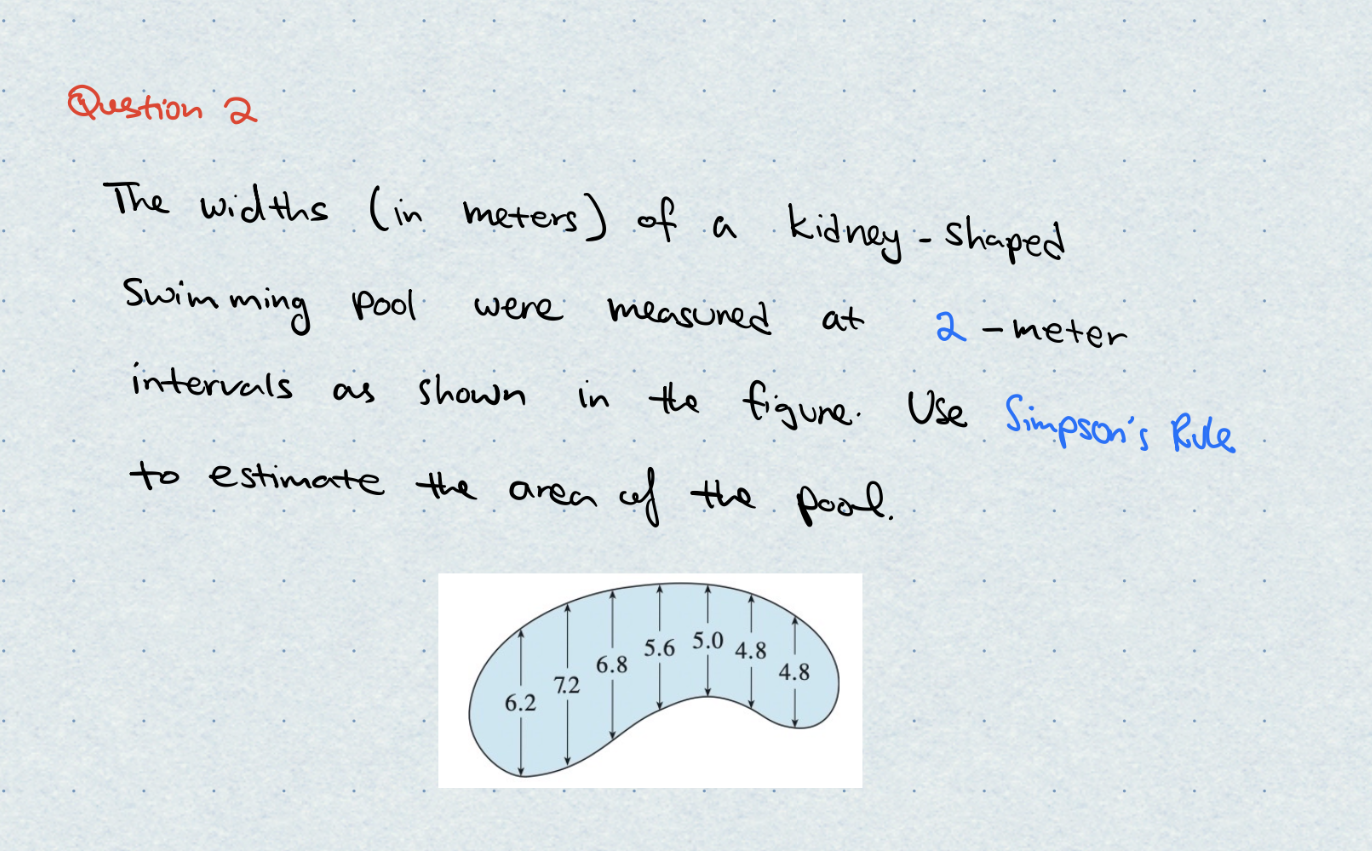 Question 2
The widths (in meters) of a kidney-shaped
swimming pool were measured at 2-meter
intervals as shown in the figure. Use Simpson's Rule
to estimate the area of the pool.
6.2 7.2 6.8 5.6 5.0 4.8 4.8